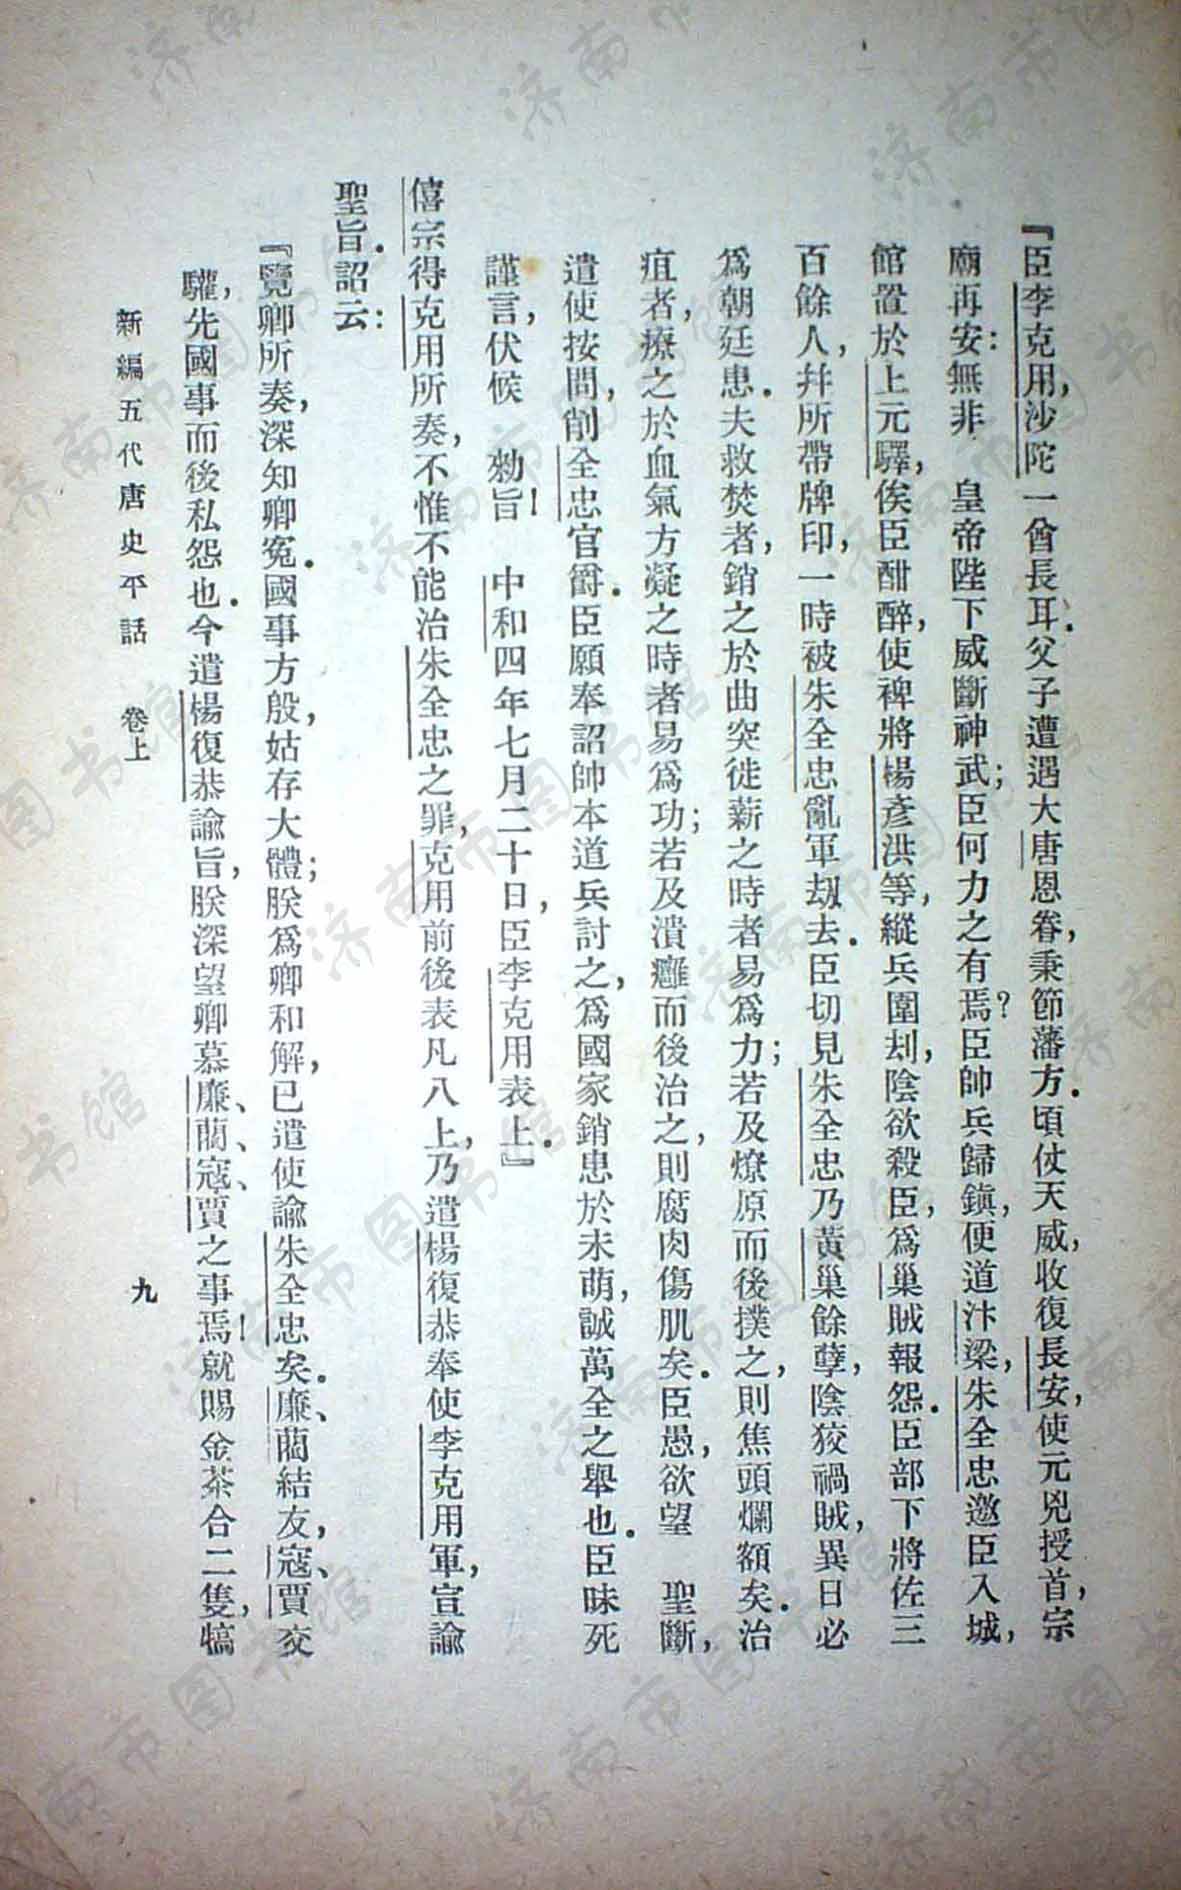 『臣李克用，沙陀一酋長耳．父子遭遇大唐恩眷，秉節藩方．頃仗天威，收復長安，使元兇授首，宗
廟再安：無非　皇帝陛下威斷神武；臣何力之有焉？臣帥兵歸鎮，便道汴梁，朱全忠邀臣入城，
館置於上元驛，俟臣酣醉，使裨將楊彥洪等，縱兵圍刦，陰欲殺臣，爲巢賊報怨．臣部下將佐三
百餘人，幷所帶牌印，一時被朱全忠亂軍刼去．臣切見朱全忠乃黃巢餘孽，陰狡禍賊，異日必
爲朝廷患．夫救焚者，銷之於曲突徙薪之時者易爲力；若及燎原而後撲之，則焦頭爛額矣．治
疽者，療之於血氣方凝之時者易爲功；若及潰癰而後治之，則腐肉傷肌矣．臣愚，欲望　聖斷，
遣使按問，削全忠官爵．臣願奉詔帥本道兵討之，爲國家銷患於未萌，誠萬全之舉也．臣昧死
謹言，伏候　勑旨！　中和四年七月二十日，臣李克用表上．』
僖宗得克用所奏，不惟不能治朱全忠之罪，克用前後表凡八上，乃遣楊復恭奉使李克用軍，宣諭
聖旨．詔云：
『覽卿所奏，深知卿冤．國事方殷，姑存大體；朕爲卿和解，已遣使諭朱全忠矣．廉、藺結友，寇、賈交
驩，先國事而後私怨也．今遣楊復恭諭旨，朕深望卿慕廉、藺、寇、賈之事焉！就賜金茶合二隻，犒
新編五代唐史平話　卷上　九
济南市图书馆